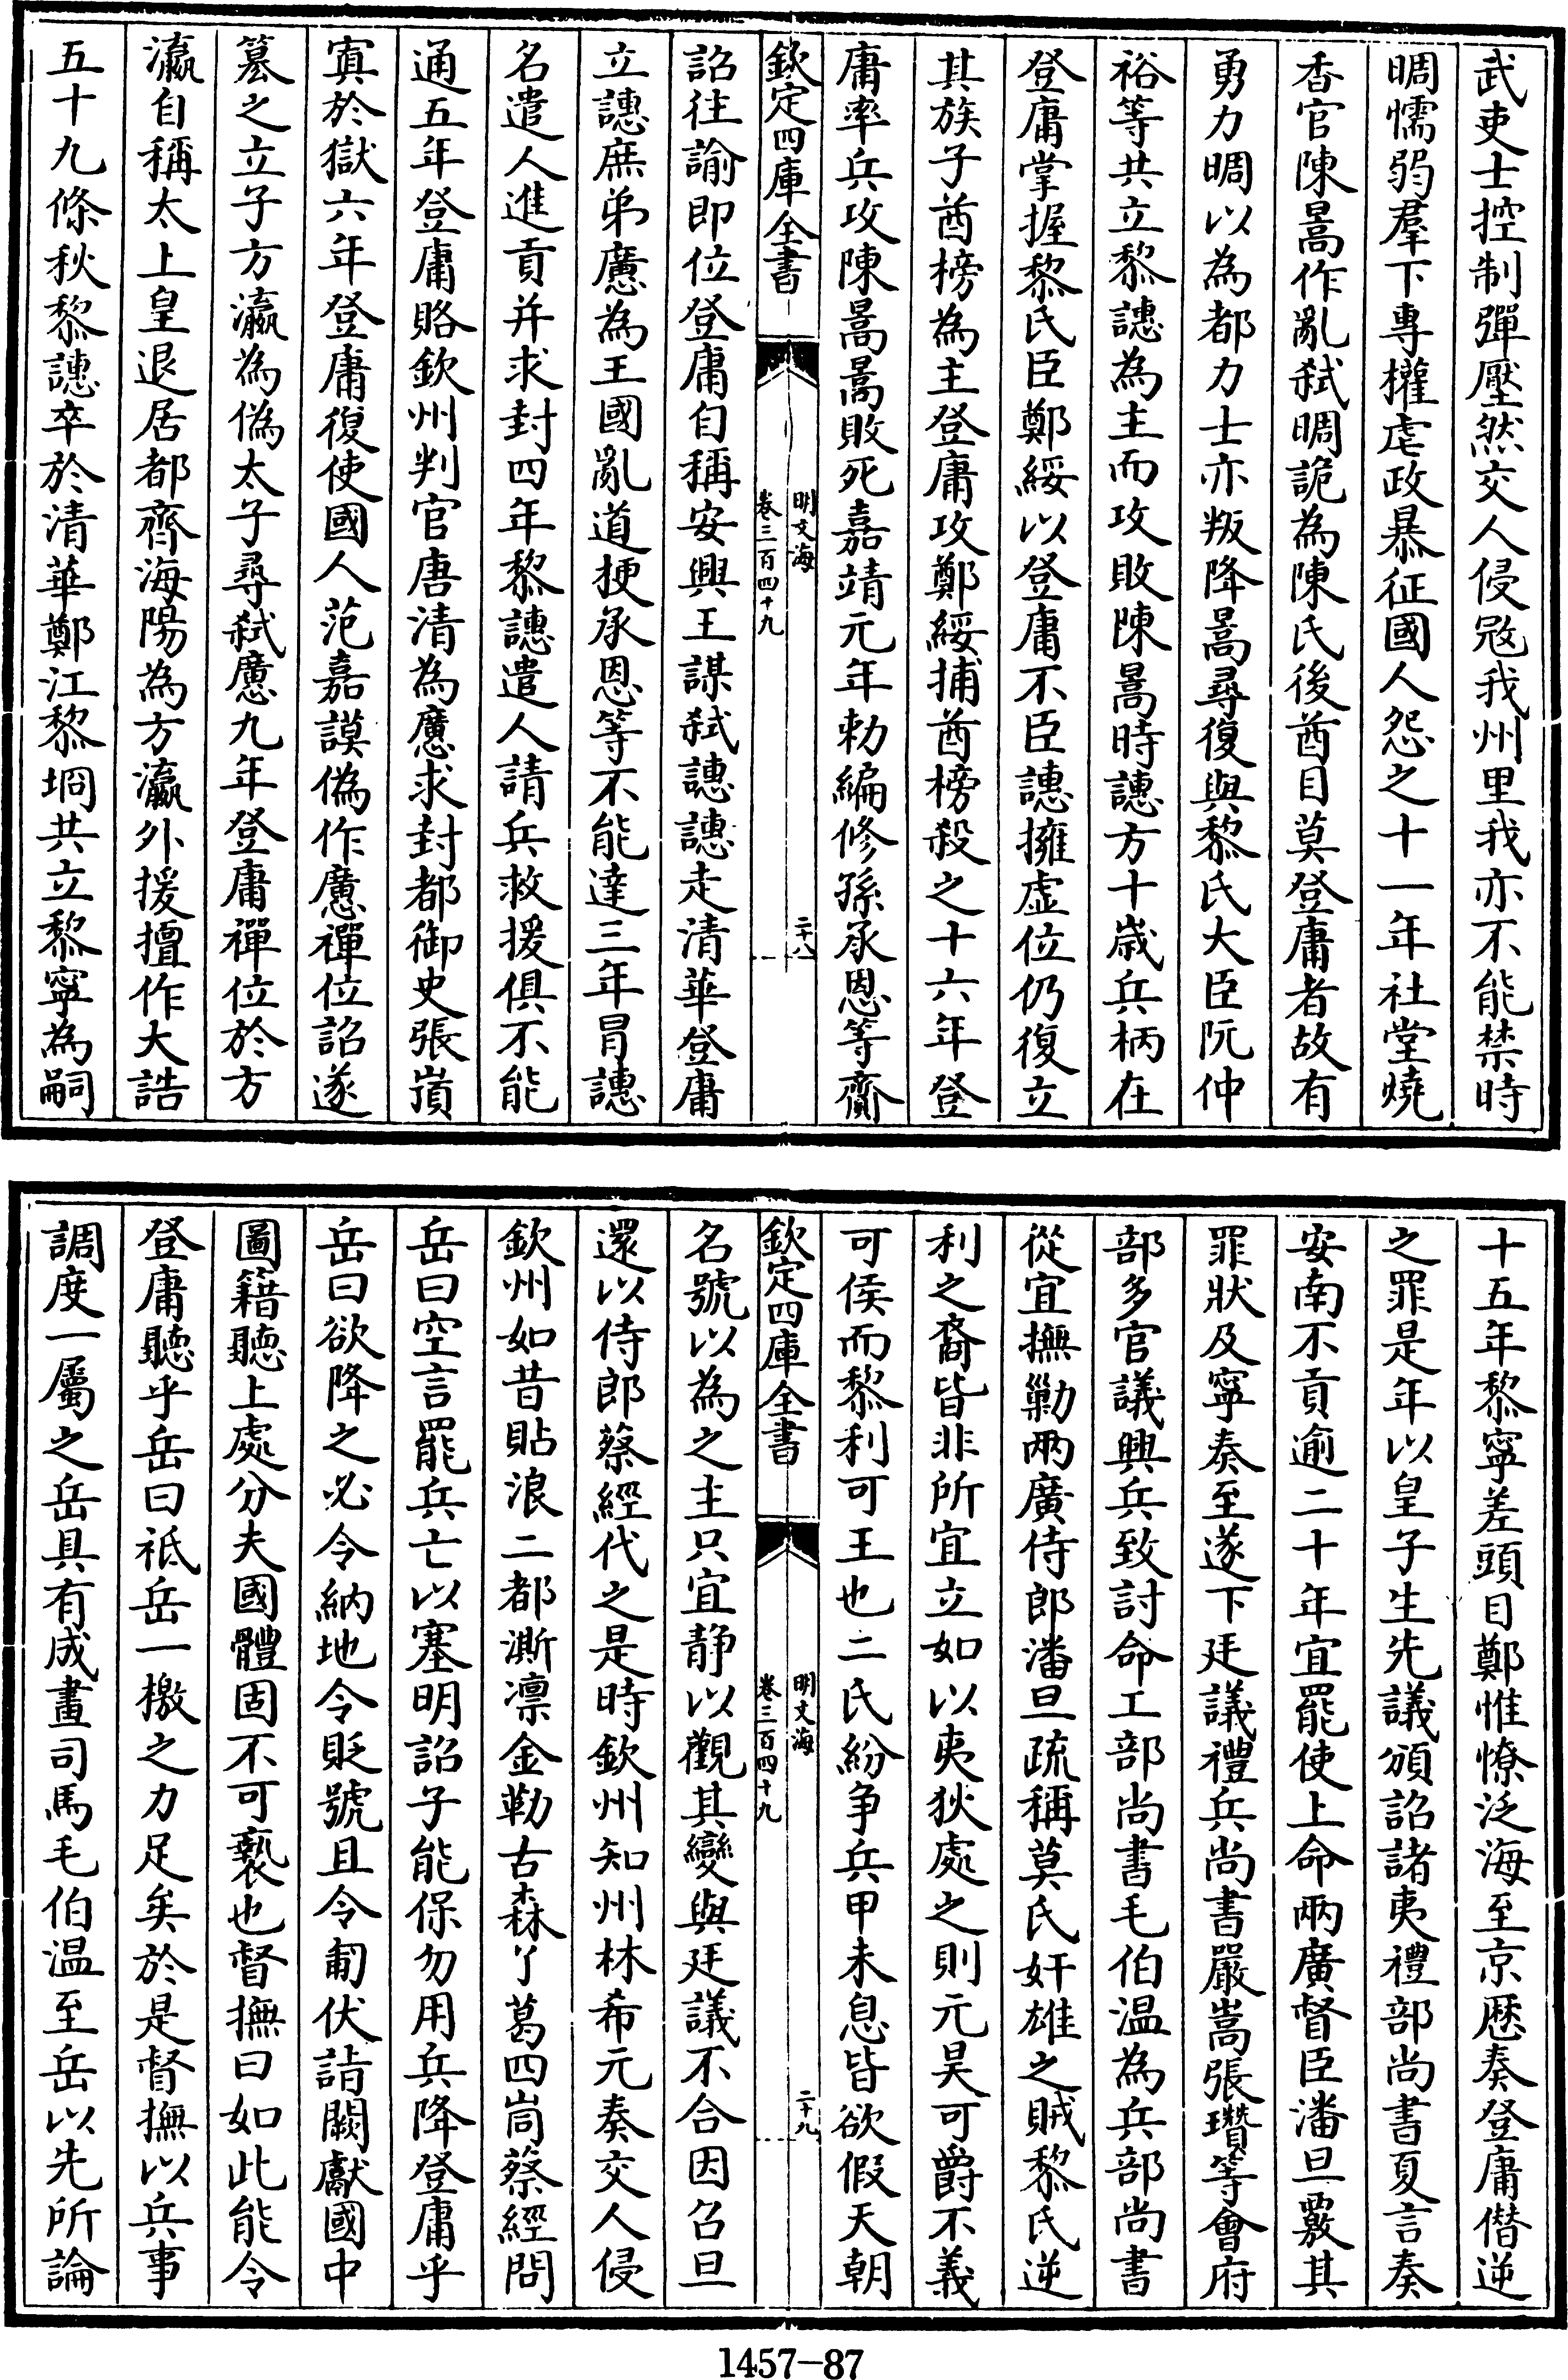 武吏士控制彈壓然交人侵冦我州里我亦不能禁時
晭懦弱羣下專權虐政暴征國人怨之十一年社堂燒
香官陳暠作亂弒晭詭為陳氏後酋目莫登庸者故有
勇力晭以為都力士亦叛降暠尋復與黎氏大臣阮仲
裕等共立黎譓為主而攻敗陳暠時譓方十歳兵柄在
登庸掌握黎氏臣鄭綏以登庸不臣譓擁虛位仍復立
其族子酋榜為主登庸攻鄭綏捕酋榜殺之十六年登
庸率兵攻陳暠暠敗死嘉靖元年勅編修孫承恩等齎
欽定四庫全書
明文海
卷三百四十九
二十八
詔往諭即位登庸自稱安興王謀弒譓譓走清華登庸
立譓庶弟懬為王國亂道梗承恩等不能達三年冐譓
名遣人進貢并求封四年黎譓遣人請兵救援俱不能
通五年登庸賂欽州判官唐清為懬求封都御史張嵿
寘於獄六年登庸復使國人范嘉謨偽作懬禪位詔遂
簒之立子方瀛為偽太子尋弒懬九年登庸禪位於方
瀛自稱太上皇退居都齋海陽為方瀛外援擅作大誥
五十九條秋黎譓卒於清華鄭江黎埛共立黎寧為嗣
十五年黎寧差頭目鄭惟憭泛海至京歴奏登庸僣逆
之罪是年以皇子生先議頒詔諸夷禮部尚書夏言奏
安南不貢逾二十年宜罷使上命兩廣督臣潘旦覈其
罪狀及寧奏至遂下廷議禮兵尚書嚴嵩張瓚等會府
部多官議興兵致討命工部尚書毛伯温為兵部尚書
從宜撫勦兩廣侍郎潘旦疏稱莫氏奸雄之賊黎氏逆
利之裔皆非所宜立如以夷狄處之則元昊可爵不義
可侯而黎利可王也二氏紛争兵甲未息皆欲假天朝
欽定四庫全書
明文海
卷三百四十九
二十九
名號以為之主只宜静以觀其變與廷議不合因召旦
還以侍郎蔡經代之是時欽州知州林希元奏交人侵
欽州如昔貼浪二都澌凛金勒古森丫葛四峝蔡經問
岳曰空言罷兵亡以塞明詔子能保勿用兵降登庸乎
岳曰欲降之必令納地令貶號且令匍伏詣闕獻國中
圖籍聽上處分夫國體固不可褻也督撫曰如此能令
登庸聽乎岳曰祗岳一檄之力足矣於是督撫以兵事
調度一屬之岳具有成畫司馬毛伯温至岳以先所論
1457-87